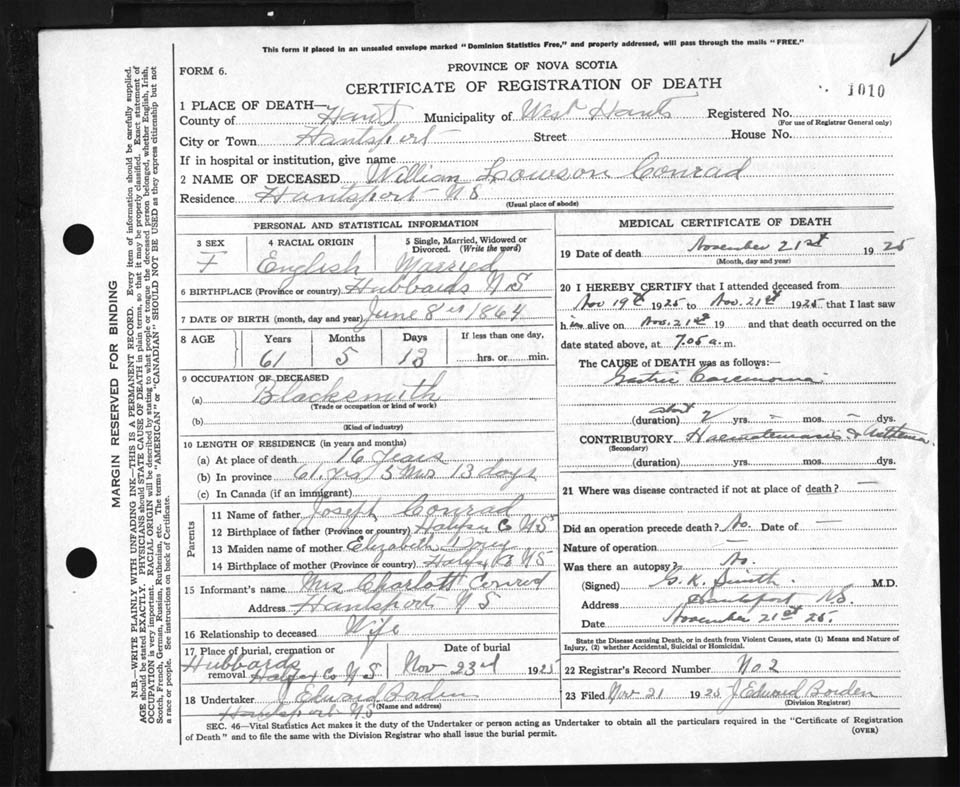 This form if placed in an unsealed envelope marked "Dominion Statistics Free," and properly addressed, will pass through the mails "FREE."
FORM 6.
PROVINCE OF NOVA SCOTIA
CERTIFICATE OF REGISTRATION OF DEATH
1010
1 PLACE OF DEATH—
County of Hants Municipality of West Hants Registered No.
(For use of Registrar General only)
City or Town Hantsport Street House No.
If in hospital or institution, give name
2 NAME OF DECEASED William Lowson Conrad
Residence Hantsport NS
(Usual place of abode)
PERSONAL AND STATISTICAL INFORMATION
3 SEX 4 RACIAL ORIGIN 5 Single, Married, Widowed or Divorced. (Write the word)
F English Married
6 BIRTHPLACE (Province or country) Hubbards NS
7 DATE OF BIRTH (month, day and year) June 8th 1864
8 AGE Years Months Days If less than one day,
61 5 13 hrs. or min.
9 OCCUPATION OF DECEASED
(a) Blacksmith
(Trade or occupation or kind of work)
(b)
(Kind of industry)
10 LENGTH OF RESIDENCE (in years and months)
(a) At place of death 16 years
(b) In province 61 yrs 5 Mos 13 days
(c) In Canada (if an immigrant)
Parents
11 Name of father Joseph Conrad
12 Birthplace of father (Province or country) Halifax Co NS
13 Maiden name of mother Elizabeth Dorey
14 Birthplace of mother (Province or country) Halifax Co NS
15 Informant's name Mrs Charlott Conrad
Address Hantsport NS
16 Relationship to deceased Wife
17 Place of burial, cremation or removal Date of burial
Hubbards Halifax Co NS Nov 23rd 1925
18 Undertaker J Edward Borden
(Name and address)
Hantsport NS
MEDICAL CERTIFICATE OF DEATH
19 Date of death November 21st 1925
(Month, day and year)
20 I HEREBY CERTIFY that I attended deceased from
Nov 19th 1925 to Nov. 21st 1925 that I last saw
him alive on Nov. 21st 19 and that death occurred on
date stated above, at 7.05 a.m.
The CAUSE of DEATH was as follows:—
Gastric Carcinoma
(duration) about 2 yrs. — mos. — dys.
CONTRIBUTORY Haematemesis & Asthenia
(Secondary)
(duration) yrs. mos. dys.
21 Where was disease contracted if not at place of death? —
Did an operation precede death? No. Date of —
Nature of operation —
Was there an autopsy? No.
(Signed) G. K. Smith M.D.
Address Hantsport NS.
Date November 21st 25.
State the Disease causing Death, or in death from Violent Causes, state (1) Means and Nature of
Injury, (2) whether Accidental, Suicidal or Homicidal.
22 Registrar's Record Number No. 2
23 Filed Nov 21 1925 J Edward Borden
(Division Registrar)
SEC. 46—Vital Statistics Act makes it the duty of the Undertaker or person acting as Undertaker to obtain all the particulars required in the "Certificate of Registration
of Death" and to file the same with the Division Registrar who shall issue the burial permit.
(OVER)
MARGIN RESERVED FOR BINDING
N.B.—WRITE PLAINLY WITH UNFADING INK—THIS IS A PERMANENT RECORD. Every item of information should be carefully supplied.
AGE should be stated EXACTLY. PHYSICIANS should STATE CAUSE OF DEATH in plain terms, so that it may be properly classified. Exact statement of
OCCUPATION is very important. RACIAL ORIGIN will be described by stating to what people or tongue the deceased person belonged, whether English, Irish,
Scotch, French, German, Russian, Ruthenian, etc. The terms "AMERICAN" or "CANADIAN" SHOULD NOT BE USED as they express citizenship but not
a race or people. See instructions on back of Certificate.